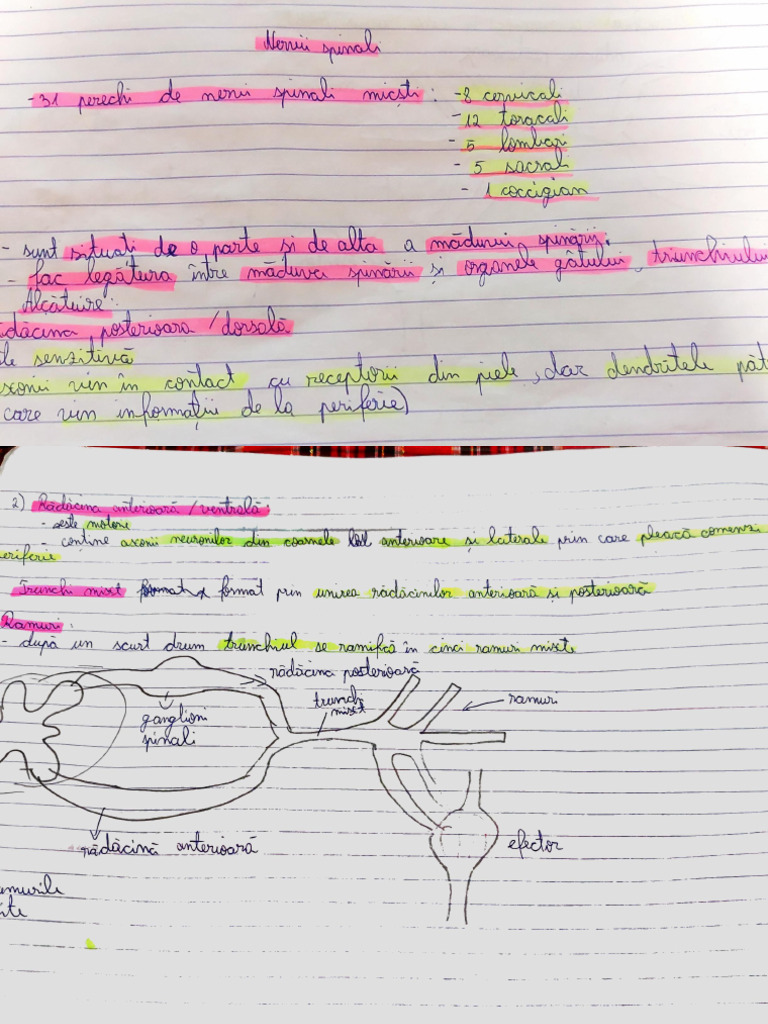 Nervii spinali
- 31 perechi de nervii spinali micști : - 8 cervicali
- 12 toracali
- 5 lombari
- 5 sacrali
- 1 coccigian
- sunt situați de o parte și de alta a măduvii spinării.
- fac legătura între măduva spinării și organele gâtului, trunchiului
Alcătuire:
dăcina posterioară / dorsală
senzitivă
axonii vin în contact cu receptorii din piele, dar dendritele
care vin informații de la periferie)
2) Rădăcina anterioară / ventrală:
- este motorie
- conține axonii neuronilor din coarnele anterioare și laterale prin care pleacă comenzi
eriferie
Trunchi mixt format prin unirea rădăcinilor anterioară și posterioară
Ramuri:
- după un scurt drum trunchiul se ramifică în cinci ramuri mixte
rădăcina posterioară
ramuri
trunchi
mixt
ganglioni
spinali
efector
rădăcină anterioară
amurile